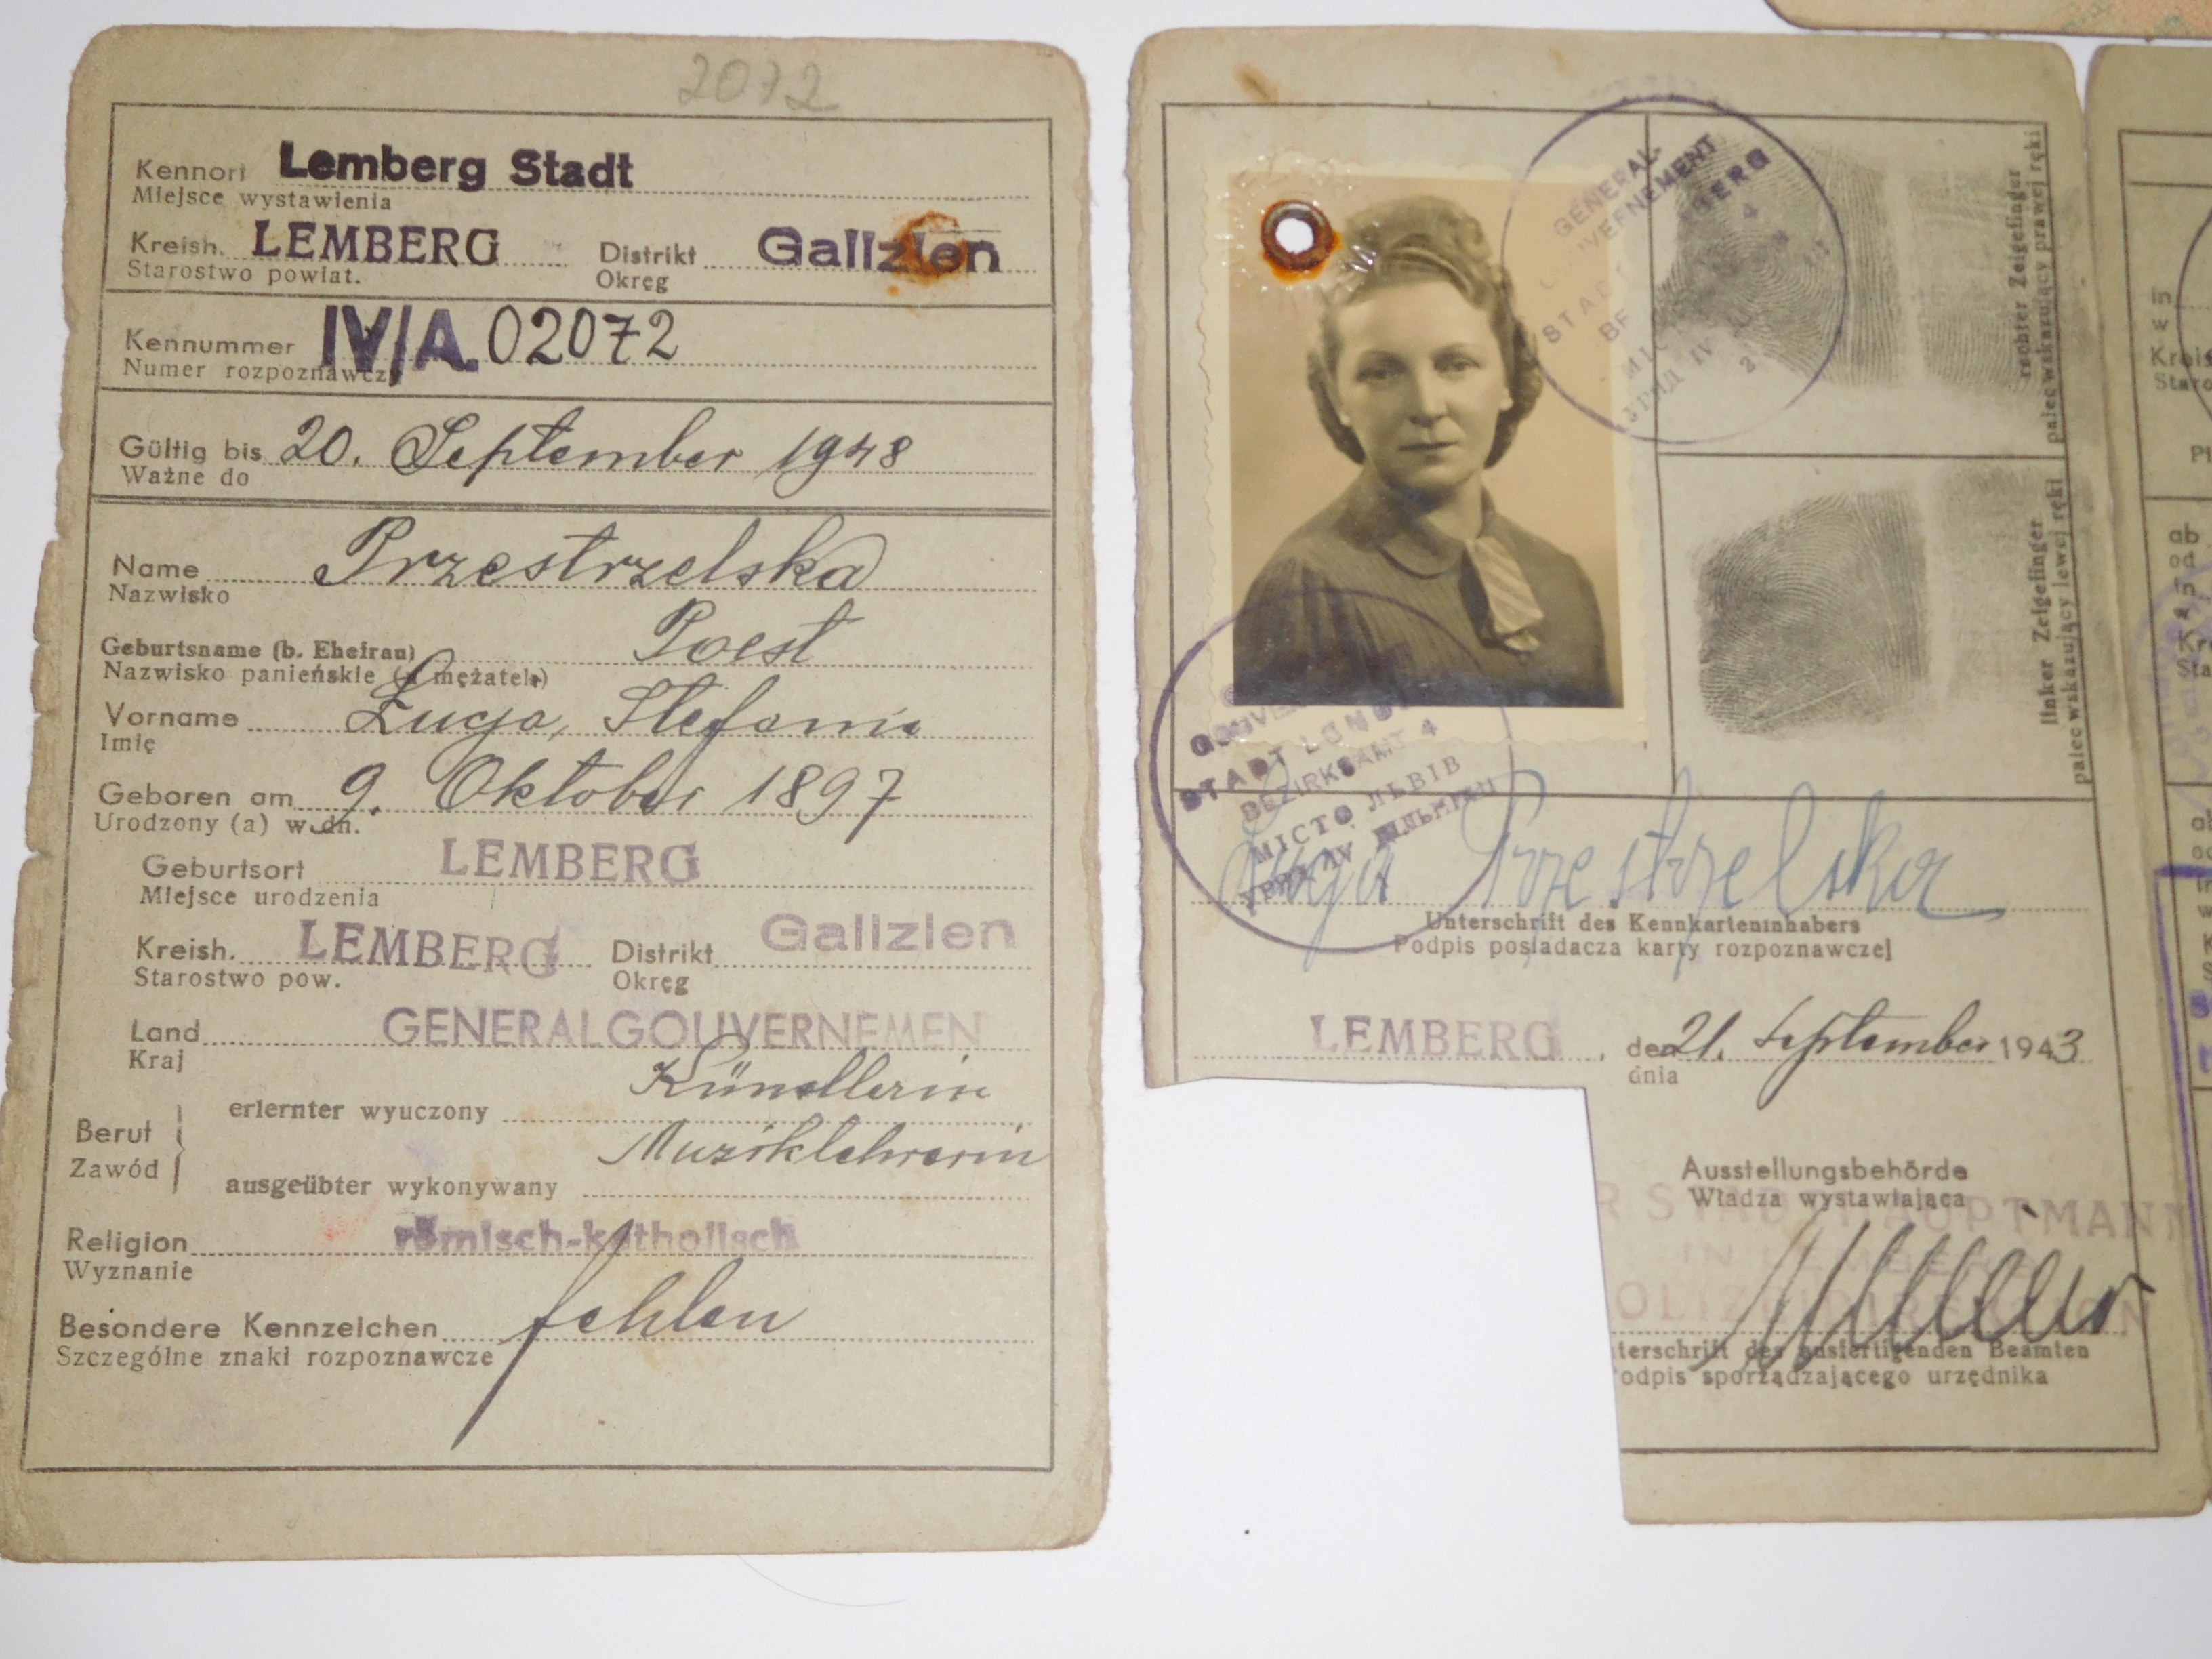 2072
Kennort Lemberg Stadt
Miejsce wystawienia
Kreish. LEMBERG Distrikt Galizien
Starostwo powiat. Okręg
Kennummer IV/A. 02072
Numer rozpoznawczy
Gültig bis 20. September 1948
Ważne do
Name Przestrzelska
Nazwisko
Geburtsname (b. Ehefrau) Poest
Nazwisko panieńskie (u mężatek)
Vorname Łucja, Stefania
Imię
Geboren am 9. Oktober 1897
Urodzony (a) w dn.
Geburtsort LEMBERG
Miejsce urodzenia
Kreish. LEMBERG Distrikt Galizien
Starostwo pow. Okręg
Land GENERALGOUVERNEMEN
Kraj
Künstlerin
erlernter wyuczony
Beruf
Zawód
Musiklehrerin
ausgeübter wykonywany
Religion römisch-katholisch
Wyznanie
Besondere Kennzeichen fehlen
Szczególne znaki rozpoznawcze
GENERAL-
rechter Zeigefinger
palec wskazujący prawej ręki
linker Zeigefinger
palec wskazujący lewej ręki
STADT
BEZIRKSAMT 4
МІСТО ЛЬВІВ
Łucja Przestrzelska
Unterschrift des Kennkarteninhabers
Podpis posiadacza karty rozpoznawczej
LEMBERG, den 21. September 1943
dnia
Ausstellungsbehörde
Władza wystawiająca
R STADTHAUPTMANN
IN LEMBERG
OLIZEIDIREKTION
terschrift des ausfertigenden Beamten
odpis sporządzającego urzędnika
in
w
Kreis
Staro
Pl
ab
od